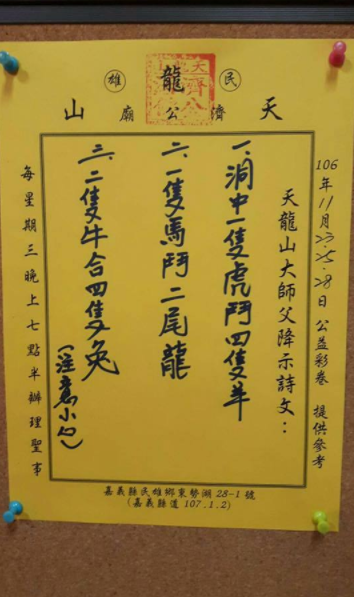 民雄
天龍山
濟公廟
106年11月23.25.28日 公益彩卷 提供參考
天龍山大師父降示詩文：
一、洞中一隻虎鬥四隻羊
二、一隻馬鬥二尾龍
三、二隻牛合四隻兔
(注意小
每星期三晚上七點半辦理聖事
嘉義縣民雄鄉東勢湖28-1號
(嘉義縣道107.1.2)